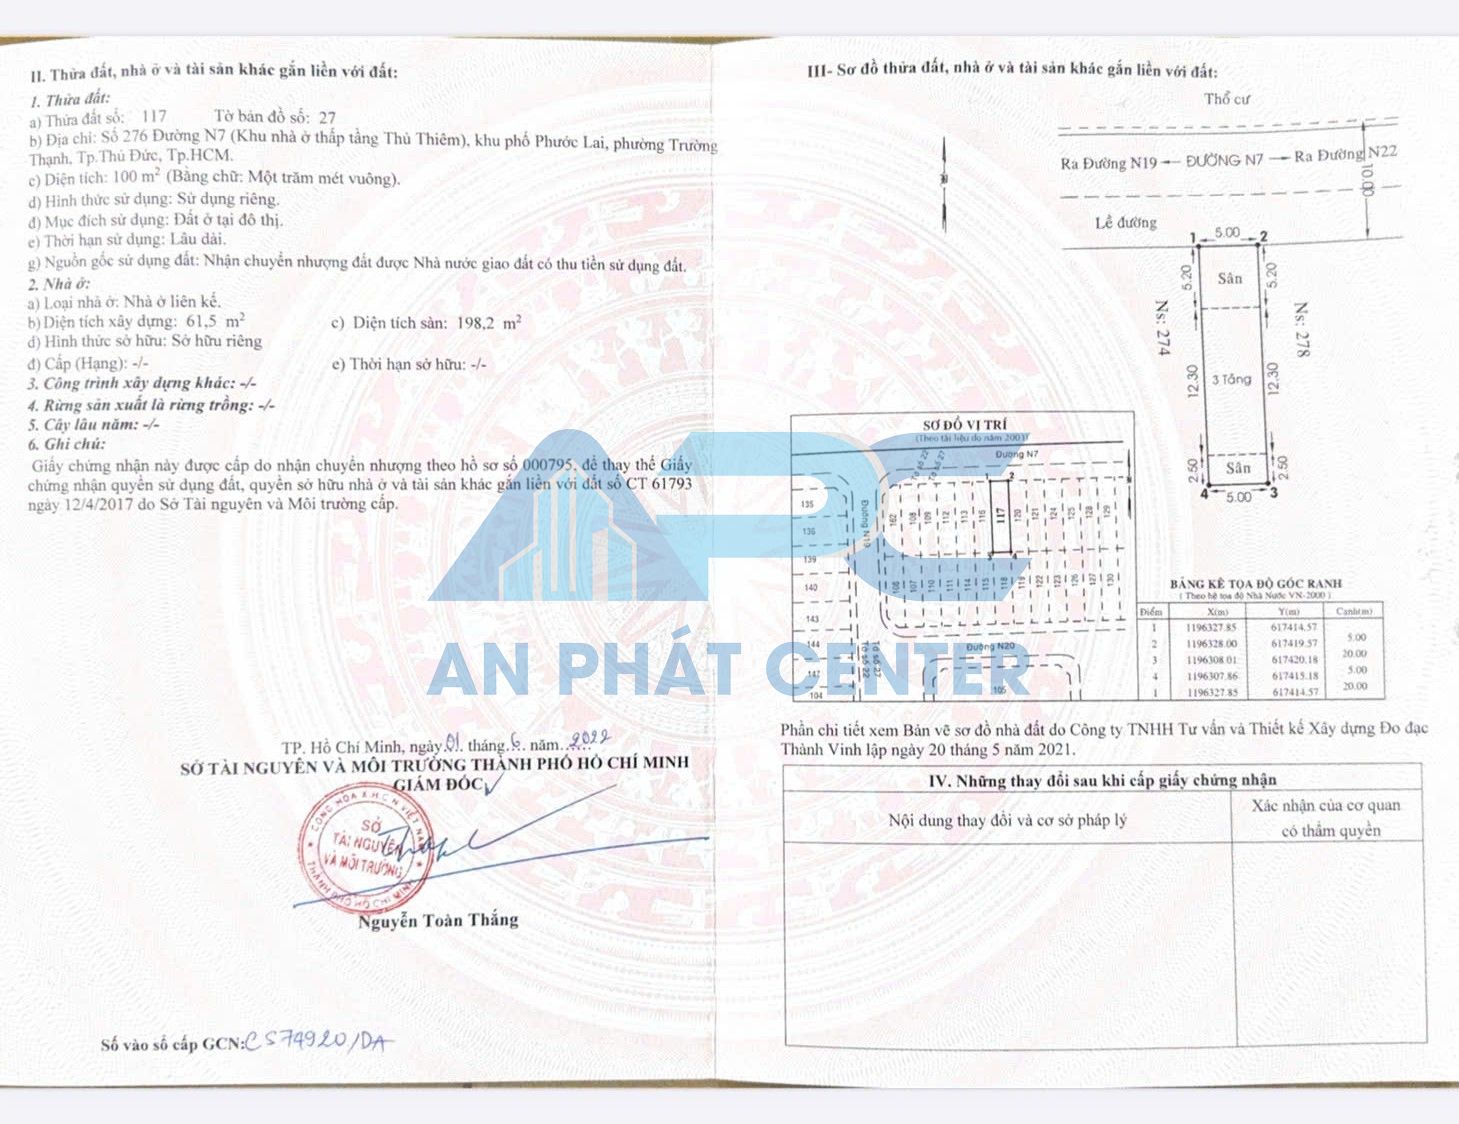 II. Thửa đất, nhà ở và tài sản khác gắn liền với đất:
1. Thửa đất:
a) Thửa đất số: 117 Tờ bản đồ số: 27
b) Địa chỉ: Số 276 Đường N7 (Khu nhà ở thấp tầng Thủ Thiêm), khu phố Phước Lai, phường Trường
Thạnh, Tp.Thủ Đức, Tp.HCM.
c) Diện tích: 100 m² (Bằng chữ: Một trăm mét vuông).
d) Hình thức sử dụng: Sử dụng riêng.
đ) Mục đích sử dụng: Đất ở tại đô thị.
e) Thời hạn sử dụng: Lâu dài.
g) Nguồn gốc sử dụng đất: Nhận chuyển nhượng đất được Nhà nước giao đất có thu tiền sử dụng đất.
2. Nhà ở:
a) Loại nhà ở: Nhà ở liên kế.
b) Diện tích xây dựng: 61,5 m² c) Diện tích sàn: 198,2 m²
d) Hình thức sở hữu: Sở hữu riêng
đ) Cấp (Hạng): -/- e) Thời hạn sở hữu: -/-
3. Công trình xây dựng khác: -/-
4. Rừng sản xuất là rừng trồng: -/-
5. Cây lâu năm: -/-
6. Ghi chú:
Giấy chứng nhận này được cấp do nhận chuyển nhượng theo hồ sơ số 000795, để thay thế Giấy
chứng nhận quyền sử dụng đất, quyền sở hữu nhà ở và tài sản khác gắn liền với đất số CT 61793
ngày 12/4/2017 do Sở Tài nguyên và Môi trường cấp.
TP. Hồ Chí Minh, ngày 01 tháng 6 năm 2022
SỞ TÀI NGUYÊN VÀ MÔI TRƯỜNG THÀNH PHỐ HỒ CHÍ MINH
GIÁM ĐỐC
CỘNG HÒA X.H.C.N VIỆT NAM
SỞ
TÀI NGUYÊN
VÀ MÔI TRƯỜNG
THÀNH PHỐ HỒ CHÍ MINH
Nguyễn Toàn Thắng
Số vào sổ cấp GCN: CS74920/DA
APC
AN PHÁT CENTER
III- Sơ đồ thửa đất, nhà ở và tài sản khác gắn liền với đất:
Thổ cư
Ra Đường N19 ĐƯỜNG N7 Ra Đường N22
10.00
Lề đường
1 5.00 2
5.20 Sân 5.20
Ns: 274 Ns: 278
12.30 3 Tầng 12.30
2.50 Sân 2.50
4 5.00 3
SƠ ĐỒ VỊ TRÍ
(Theo tài liệu đo năm 2003)
Đường N7
Tờ số 22
Tờ số 27
1 2
135
136
139
140
143
144
147
104
Đường N19
162 108 109 112 113 116 117 120 121 124 125 128 129
3 4
106 107 110 111 114 115 118 119 122 123 126 127 130
Tờ số 27
Tờ số 22
Đường N20
105
BẢNG KÊ TỌA ĐỘ GÓC RANH
( Theo hệ tọa độ Nhà Nước VN-2000 )
Điểm X(m) Y(m) Cạnh(m)
1 1196327.85 617414.57
5.00
2 1196328.00 617419.57
20.00
3 1196308.01 617420.18
5.00
4 1196307.86 617415.18
20.00
1 1196327.85 617414.57
Phần chi tiết xem Bản vẽ sơ đồ nhà đất do Công ty TNHH Tư vấn và Thiết kế Xây dựng Đo đạc
Thành Vinh lập ngày 20 tháng 5 năm 2021.
IV. Những thay đổi sau khi cấp giấy chứng nhận
Nội dung thay đổi và cơ sở pháp lý
Xác nhận của cơ quan
có thẩm quyền